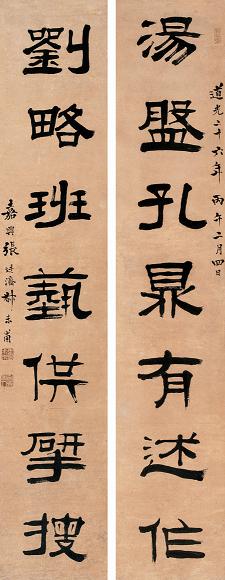 道光二十六年丙午二月四日
湯盤孔鼎有述作
劉略班藝供揅搜
嘉興張廷濟叔未甫